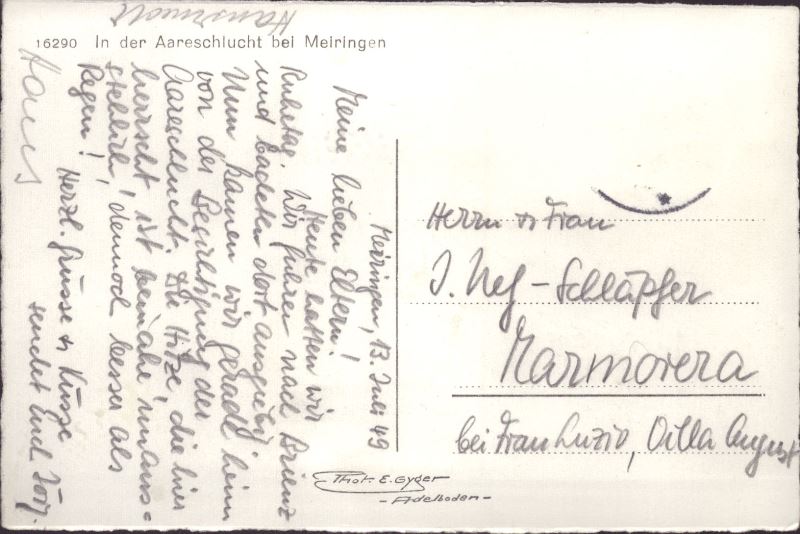 16290 In der Aareschlucht bei Meiringen
Meiringen, 13. Juli 49
Meine lieben Eltern!
Heute hatten wir
Ruhetag. Wir fuhren nach Brienz
und badeten dort ausgiebig.
Nun kamen wir gerade heim
von der Besichtigung der
Aareschlucht. Die Hitze, die hier
herrscht ist beinahe unauss=
stehlich, dennoch besser als
Regen!
Herzl. Grüsse & Küsse
sendet Euch
Hans
Herrn & Frau
J. Nef-Schläpfer
Marmorera
bei Frau Luzio, Villa August
Phot. E. Gyger
- Adelboden -